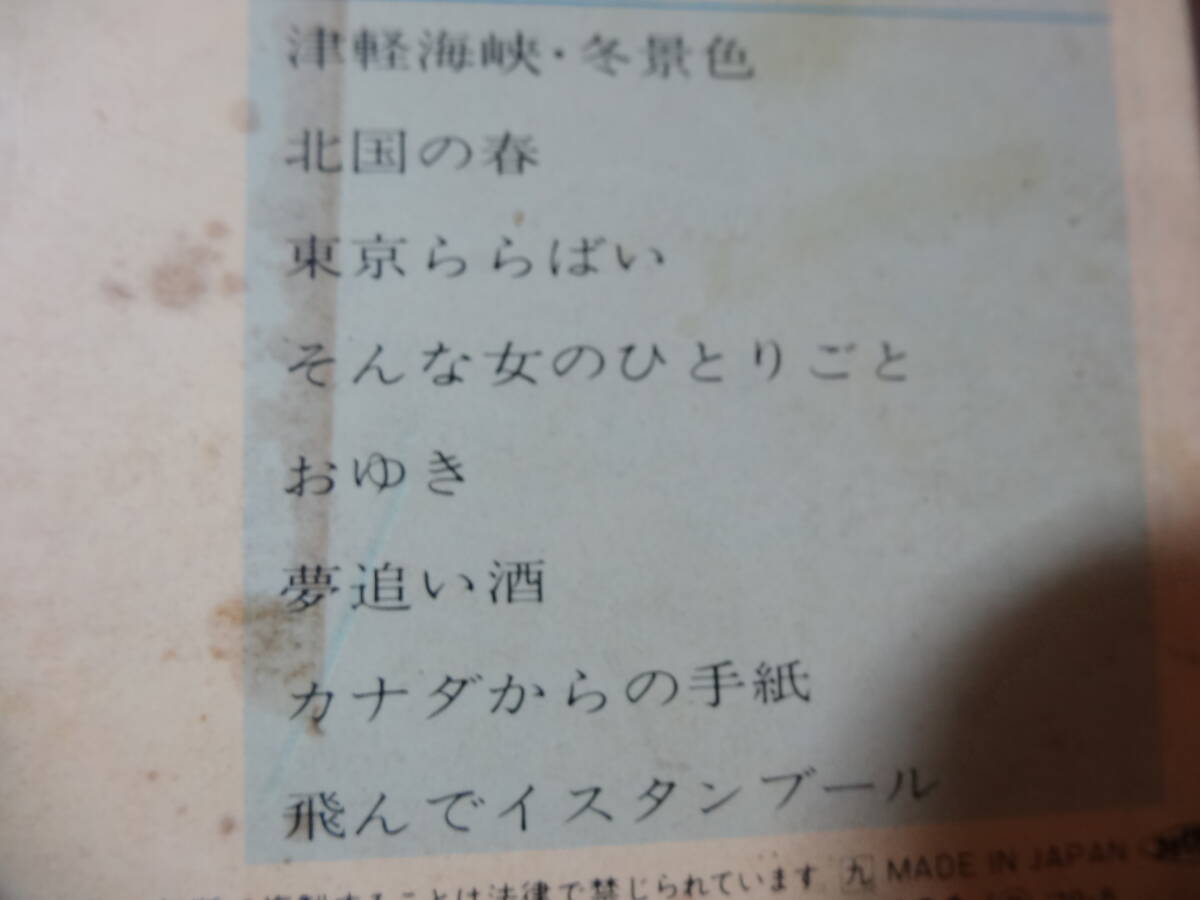 津軽海峡・冬景色
北国の春
東京ららばい
そんな女のひとりごと
おゆき
夢追い酒
カナダからの手紙
飛んでイスタンブール
することは法律で禁じられています 九 MADE IN JAPAN